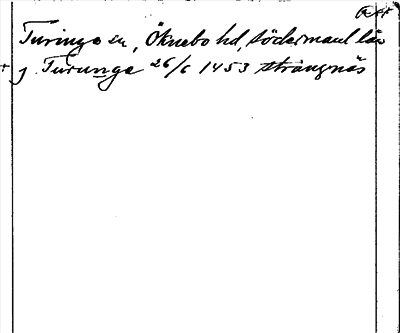 Turinge sn, Öknebo hd, Södermanl län
j Turunge 26/6 1453 Strängnäs